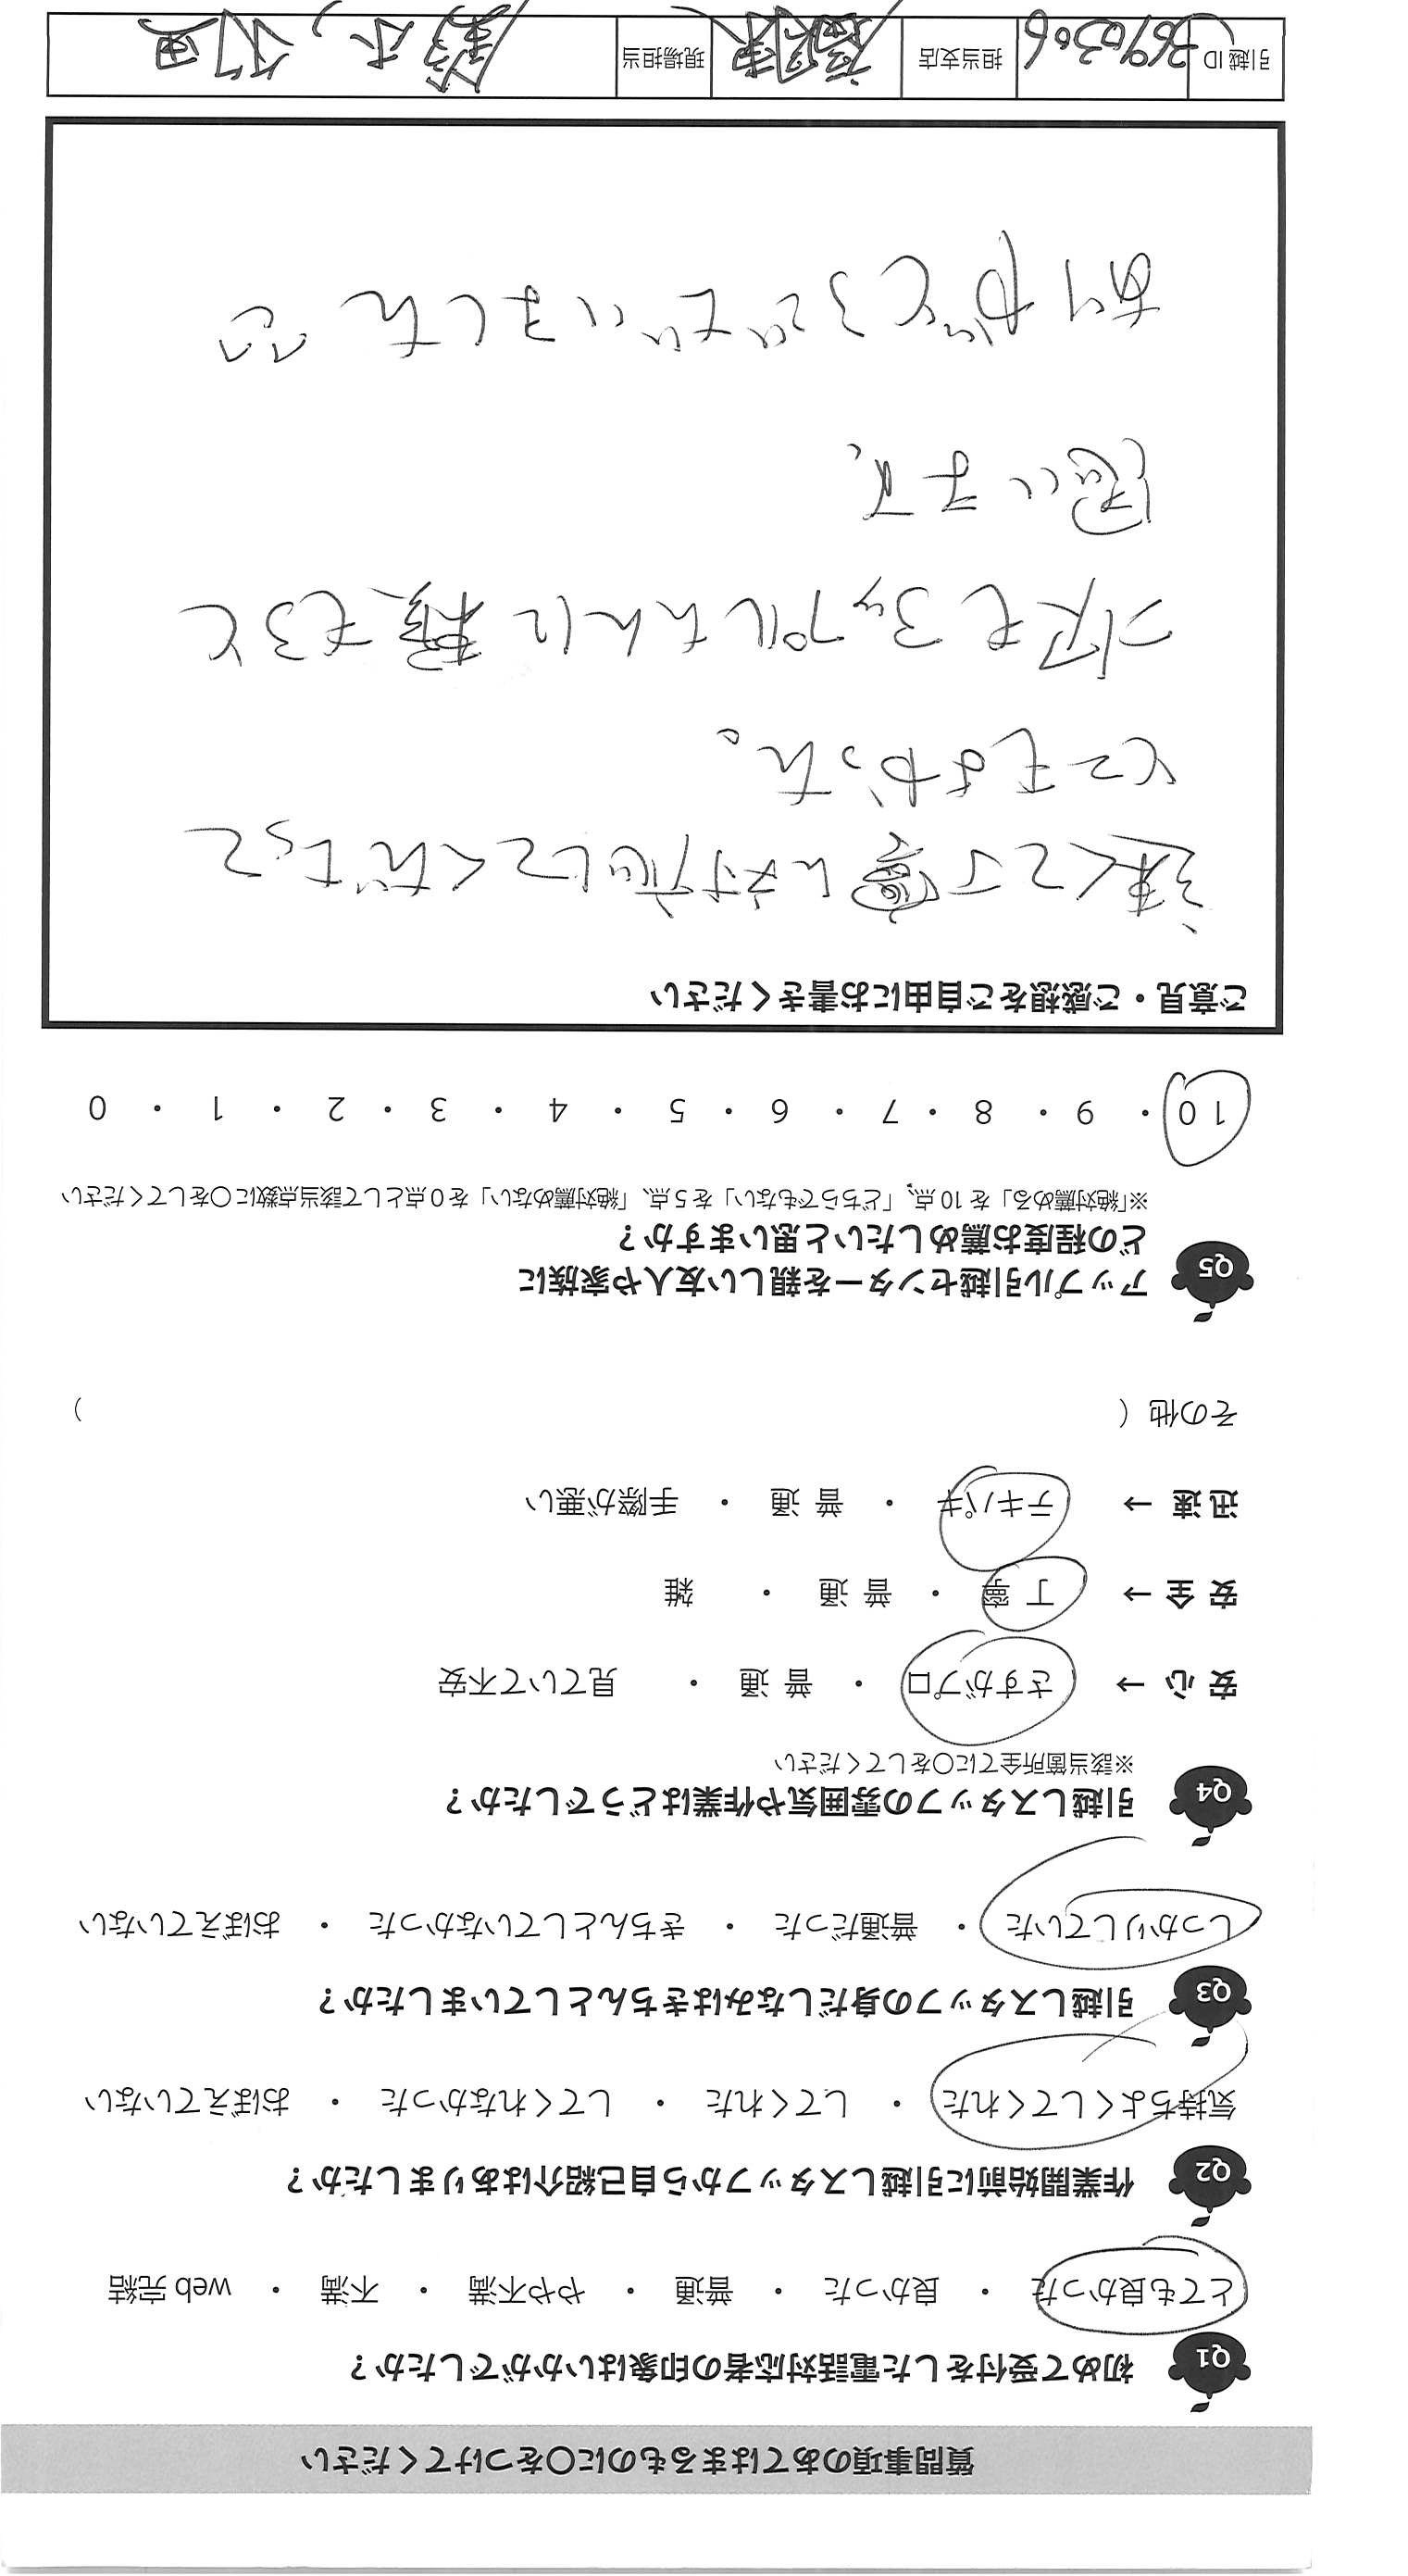 質問事項のあてはまるものに〇をつけてください
Q1 初めて受付をした電話対応者の印象はいかがでしたか？
とても良かった ・ 良かった ・ 普通 ・ やや不満 ・ 不満 ・ web 完結
Q2 作業開始前に引越しスタッフから自己紹介はありましたか？
気持ちよくしてくれた ・ してくれた ・ してくれなかった ・ おぼえていない
Q3 引越しスタッフの身だしなみはきちんとしていましたか？
しっかりしていた ・ 普通だった ・ きちんとしていなかった ・ おぼえていない
Q4 引越しスタッフの雰囲気や作業はどうでしたか？
※該当箇所全てに〇をしてください
安 心 → さすがプロ ・ 普 通 ・ 見ていて不安
安 全 → 丁 寧 ・ 普 通 ・ 雑
迅 速 → テキパキ ・ 普 通 ・ 手際が悪い
その他（ ）
Q5 アップル引越センターを親しい友人や家族に
どの程度お薦めしたいと思いますか？
※「絶対薦める」を 10 点、「どちらでもない」を 5 点、「絶対薦めない」を 0 点として該当点数に〇をしてください
10 ・ 9 ・ 8 ・ 7 ・ 6 ・ 5 ・ 4 ・ 3 ・ 2 ・ 1 ・ 0
ご意見・ご感想をご自由にお書きください
速くて丁寧に対応してくださって
とてもよかった。
次もアップルさんに頼もうと
思います。
ありがとうございました
引越 ID 担当支店 現場担当 鈴木